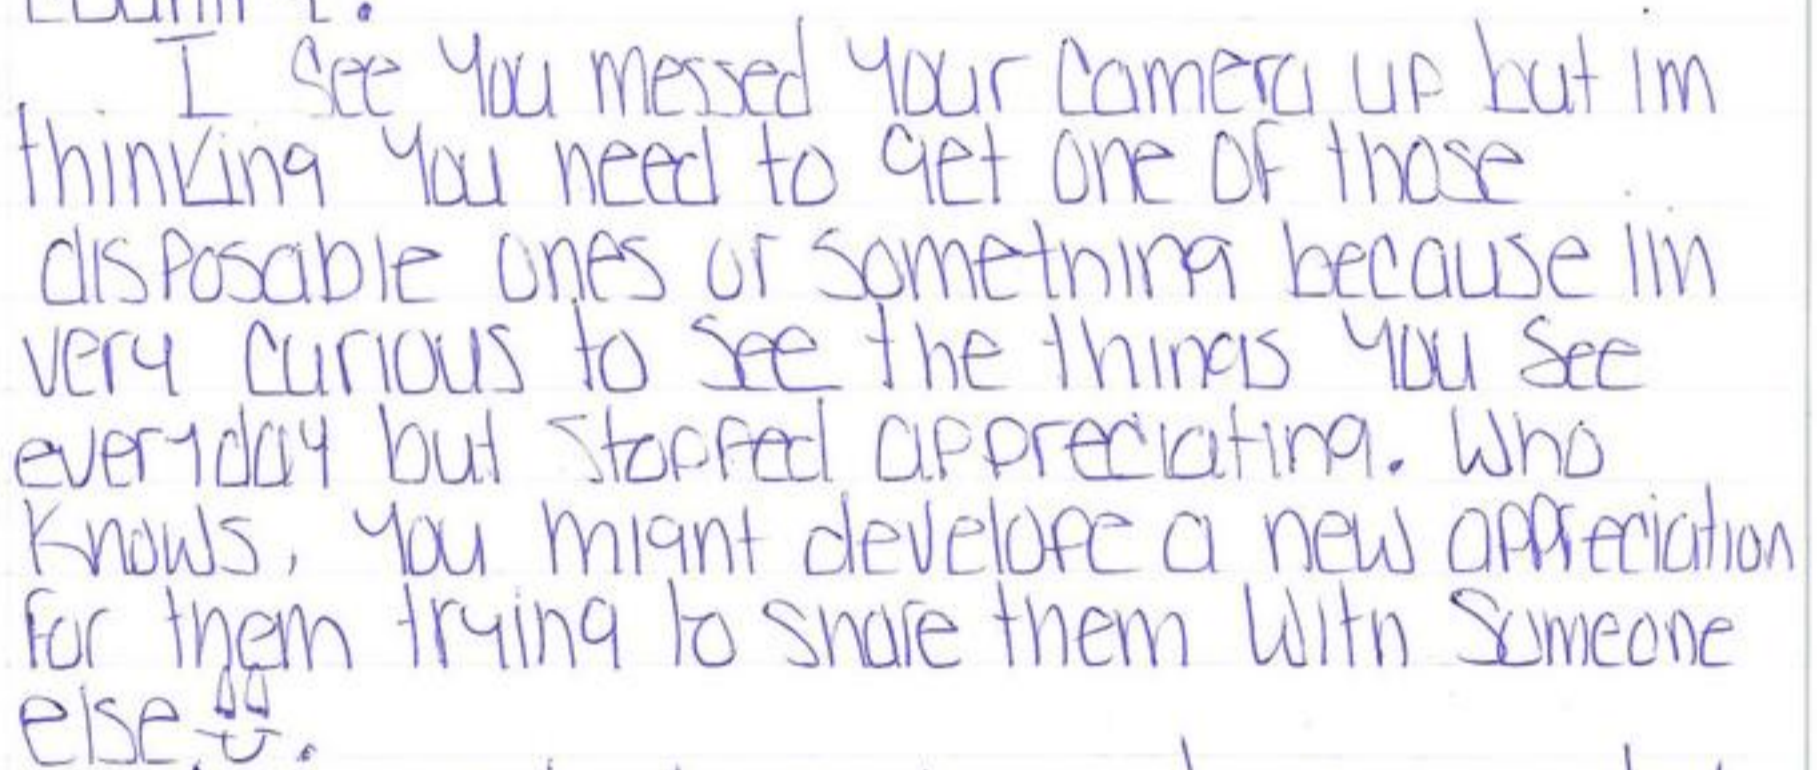 I see you messed your camera up but im
thinking you need to get one of those
disposable ones or something because im
very curious to see the things you see
everyday but stopped appreciating. Who
knows, you might develope a new appreciation
for them trying to share them with someone
else .